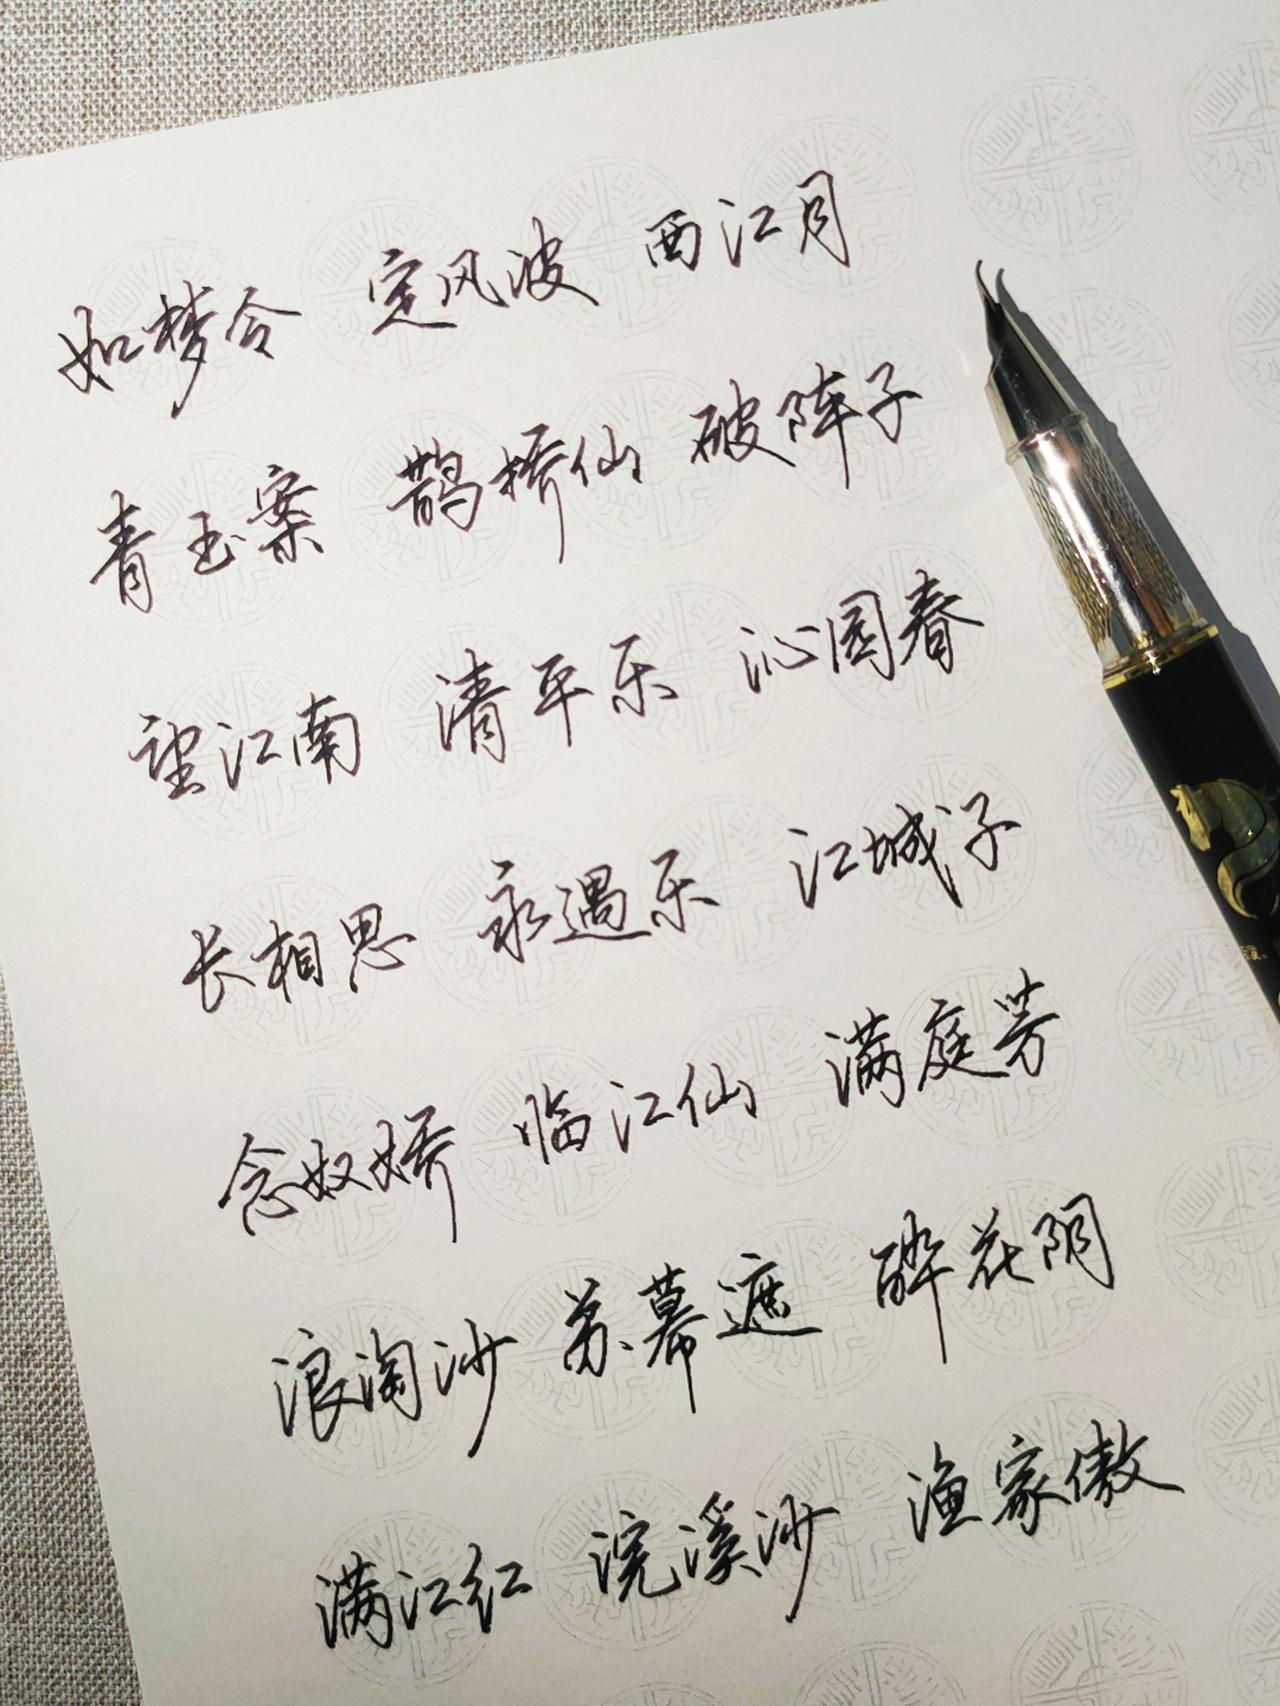 如梦令 定风波 西江月
青玉案 鹊桥仙 破阵子
望江南 清平乐 沁园春
长相思 永遇乐 江城子
念奴娇 临江仙 满庭芳
浪淘沙 苏幕遮 醉花阴
满江红 浣溪沙 渔家傲